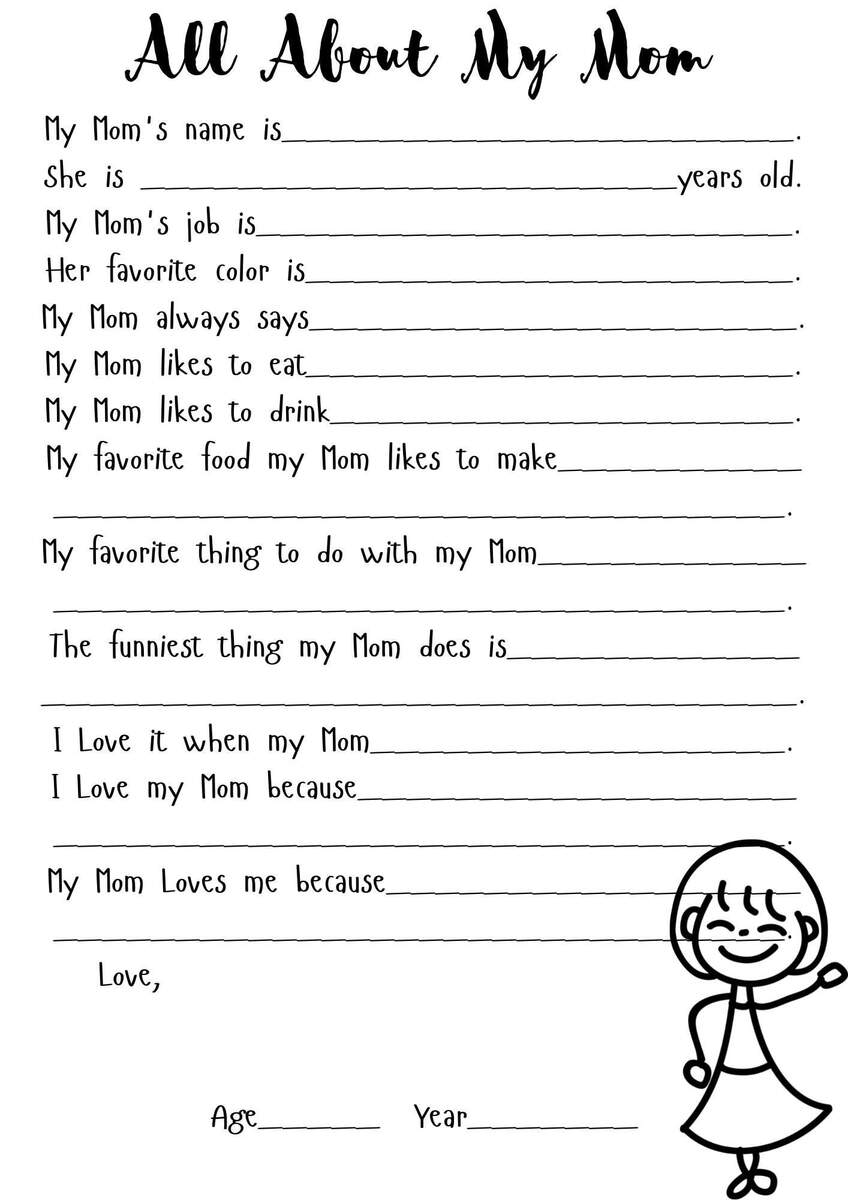 All About My Mom
My Mom's name is____________________.
She is ____________________years old.
My Mom's job is____________________.
Her favorite color is____________________.
My Mom always says____________________.
My Mom likes to eat____________________.
My Mom likes to drink____________________.
My favorite food my Mom likes to make__________
____________________.
My favorite thing to do with my Mom__________
____________________.
The funniest thing my Mom does is__________
____________________.
I Love it when my Mom____________________.
I Love my Mom because____________________
____________________.
My Mom Loves me because____________________
____________________.
Love,
Age______ Year________